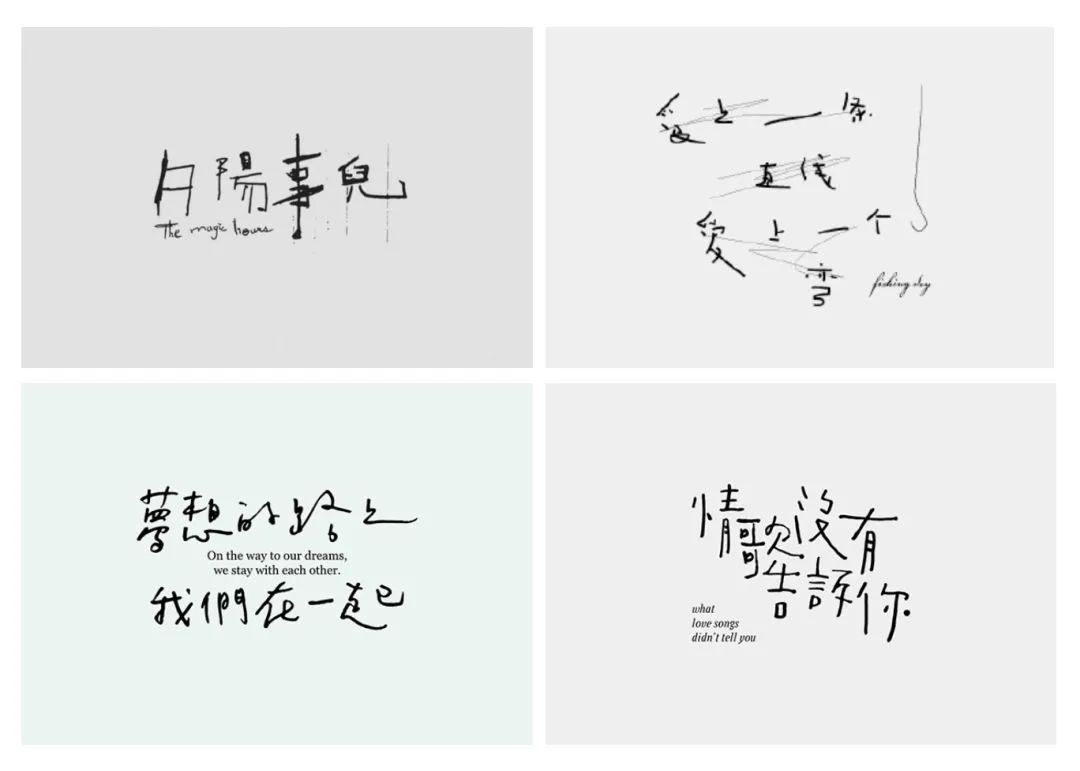 陽事兒
The magic hours
爱上一条
直线
爱上一个
弯
fishing day
夢想的路上
On the way to our dreams,
we stay with each other.
我們在一起
情歌沒有
告訴你
what
love songs
didn't tell you